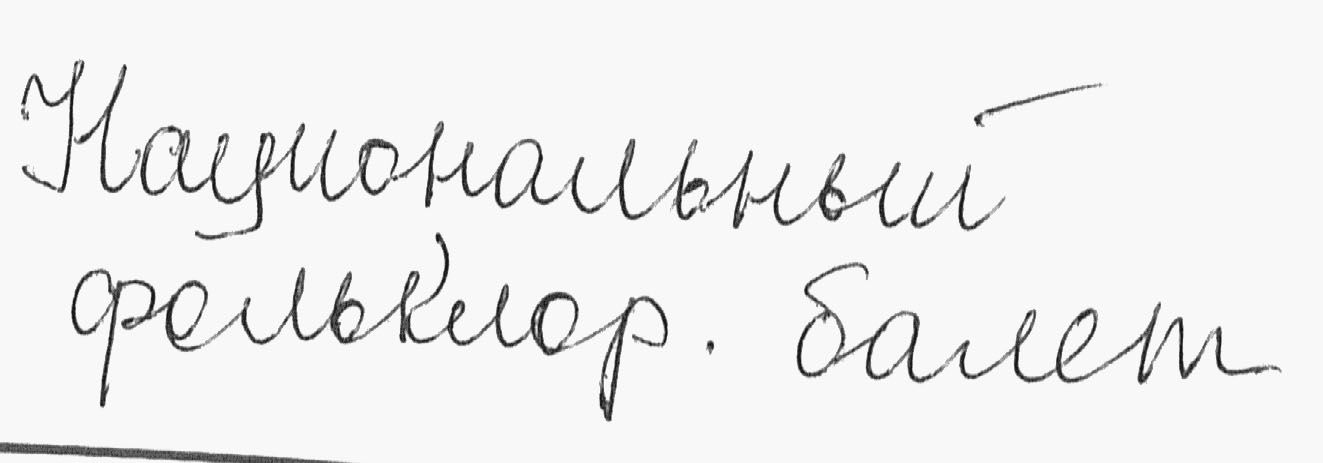 Национальный
фольклор. балет